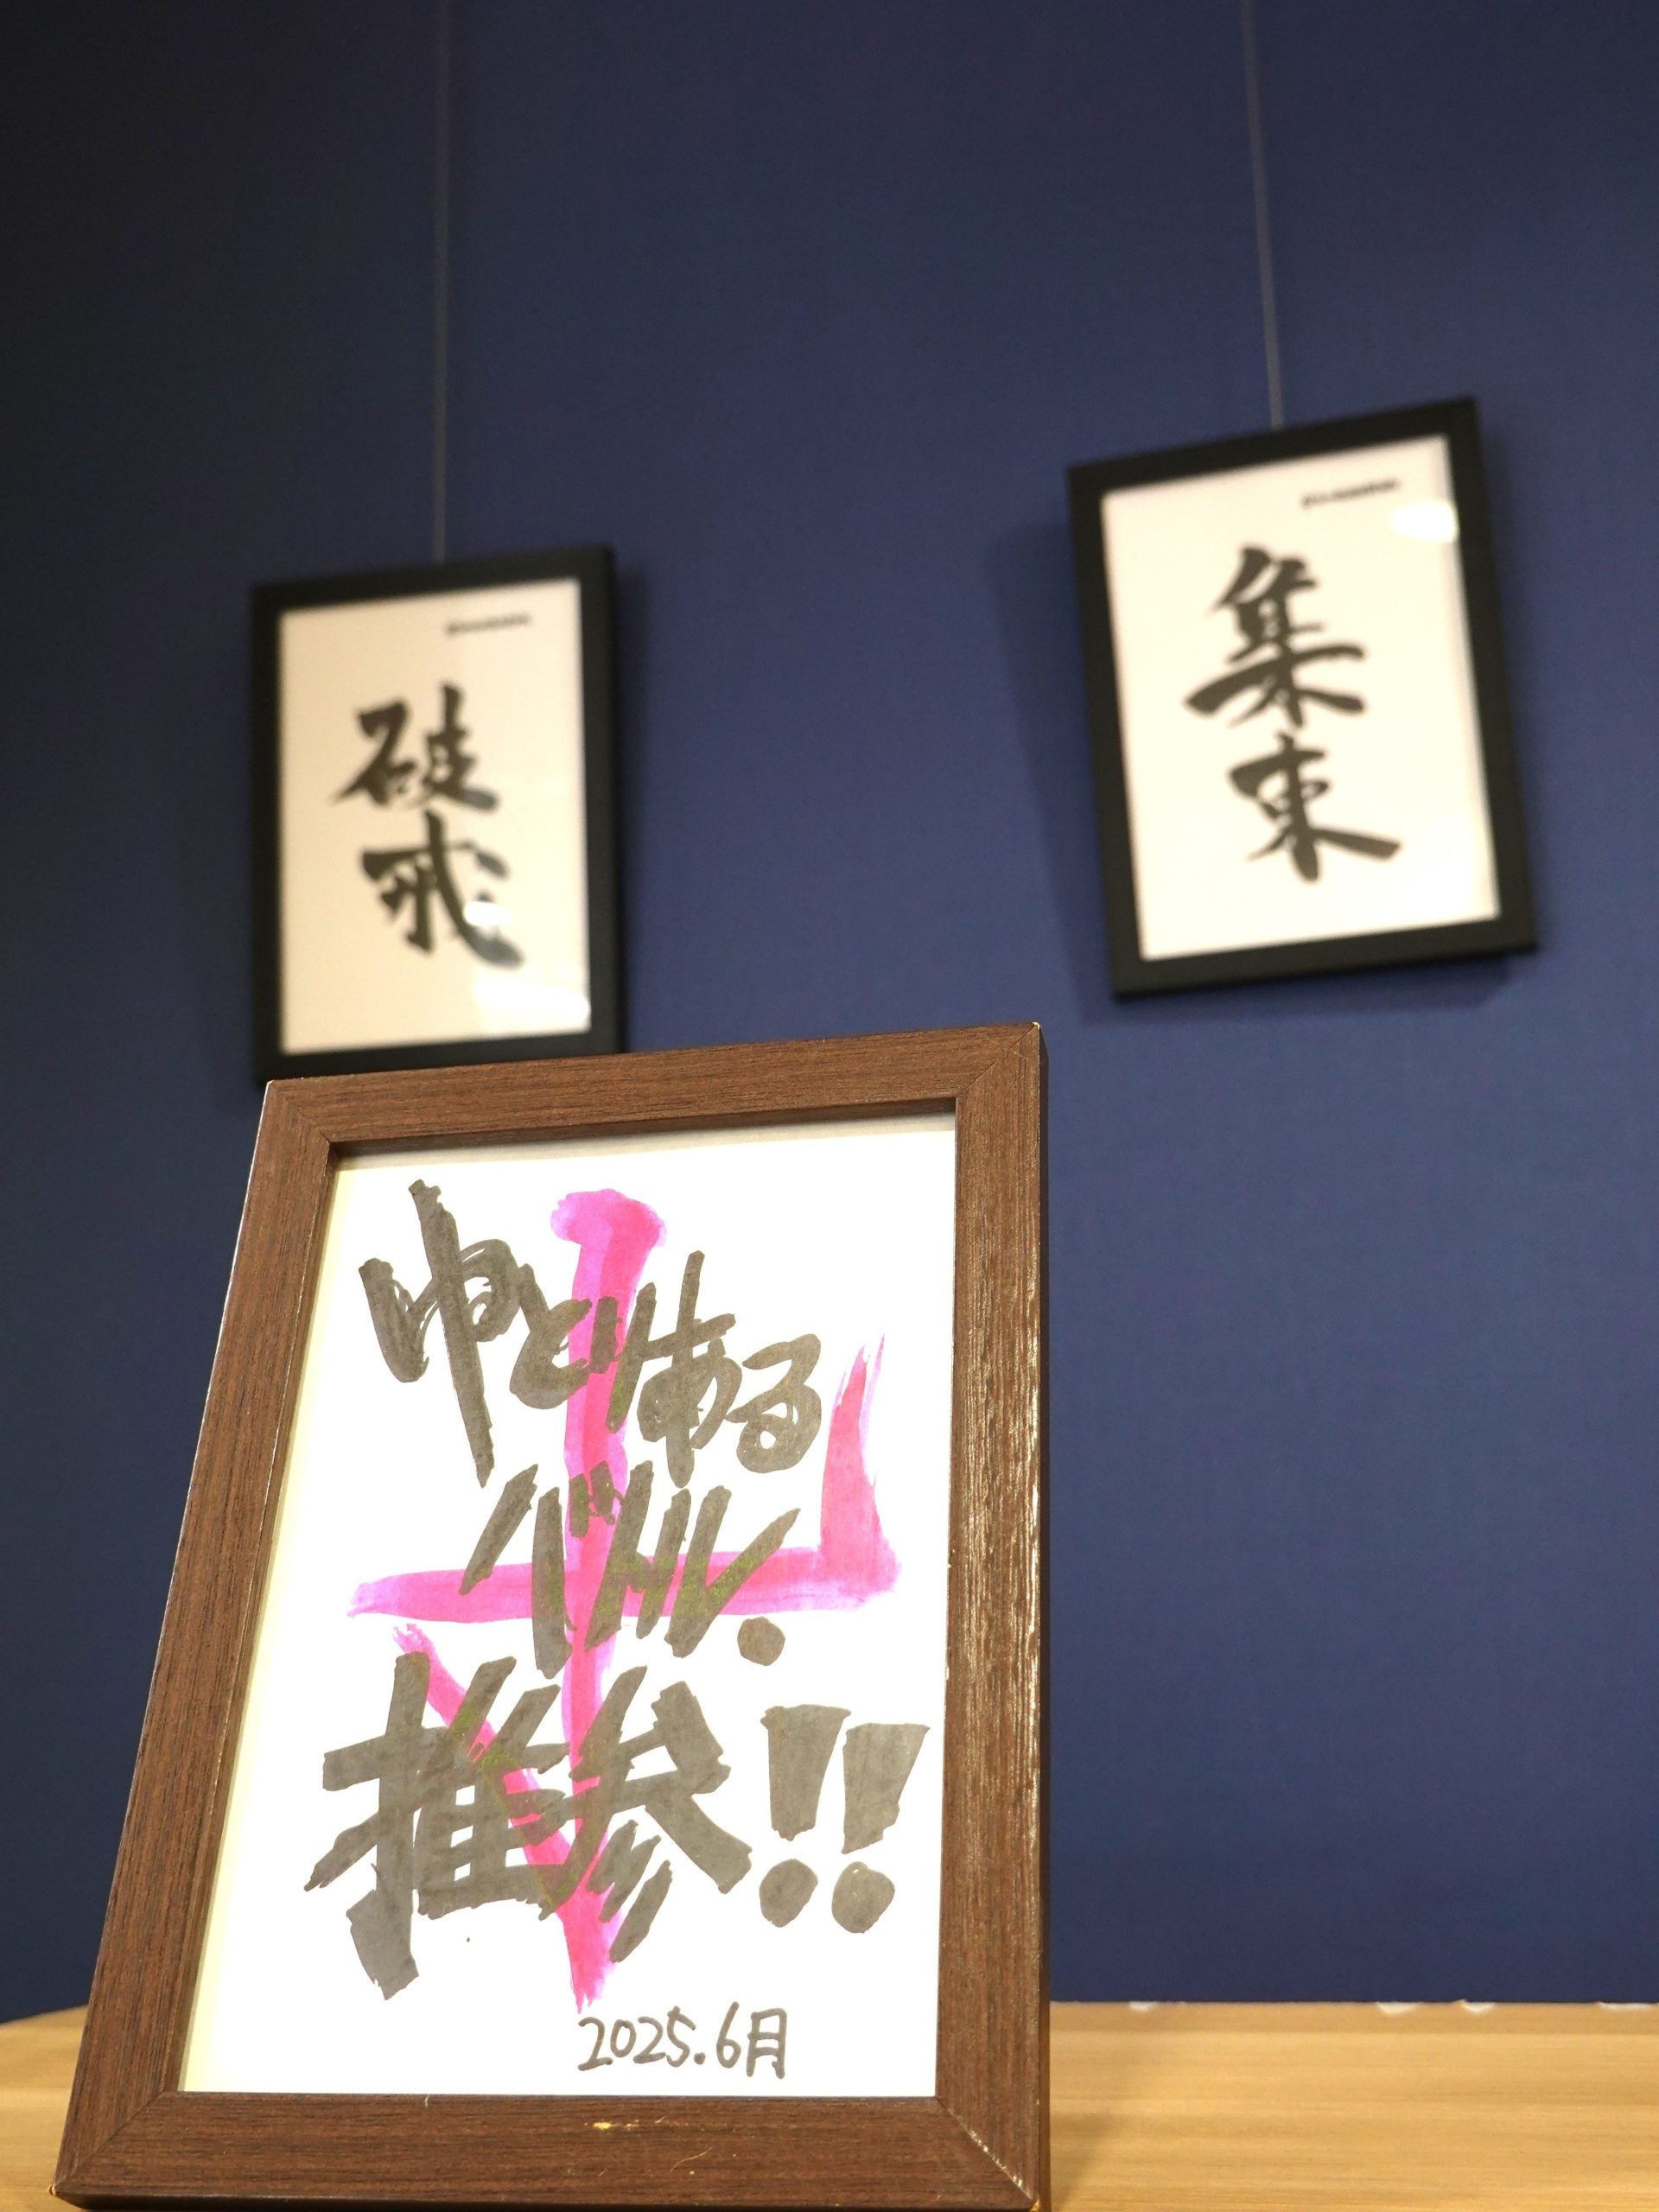 破戒
集束
ゆとりある
推参!!
2025.6月